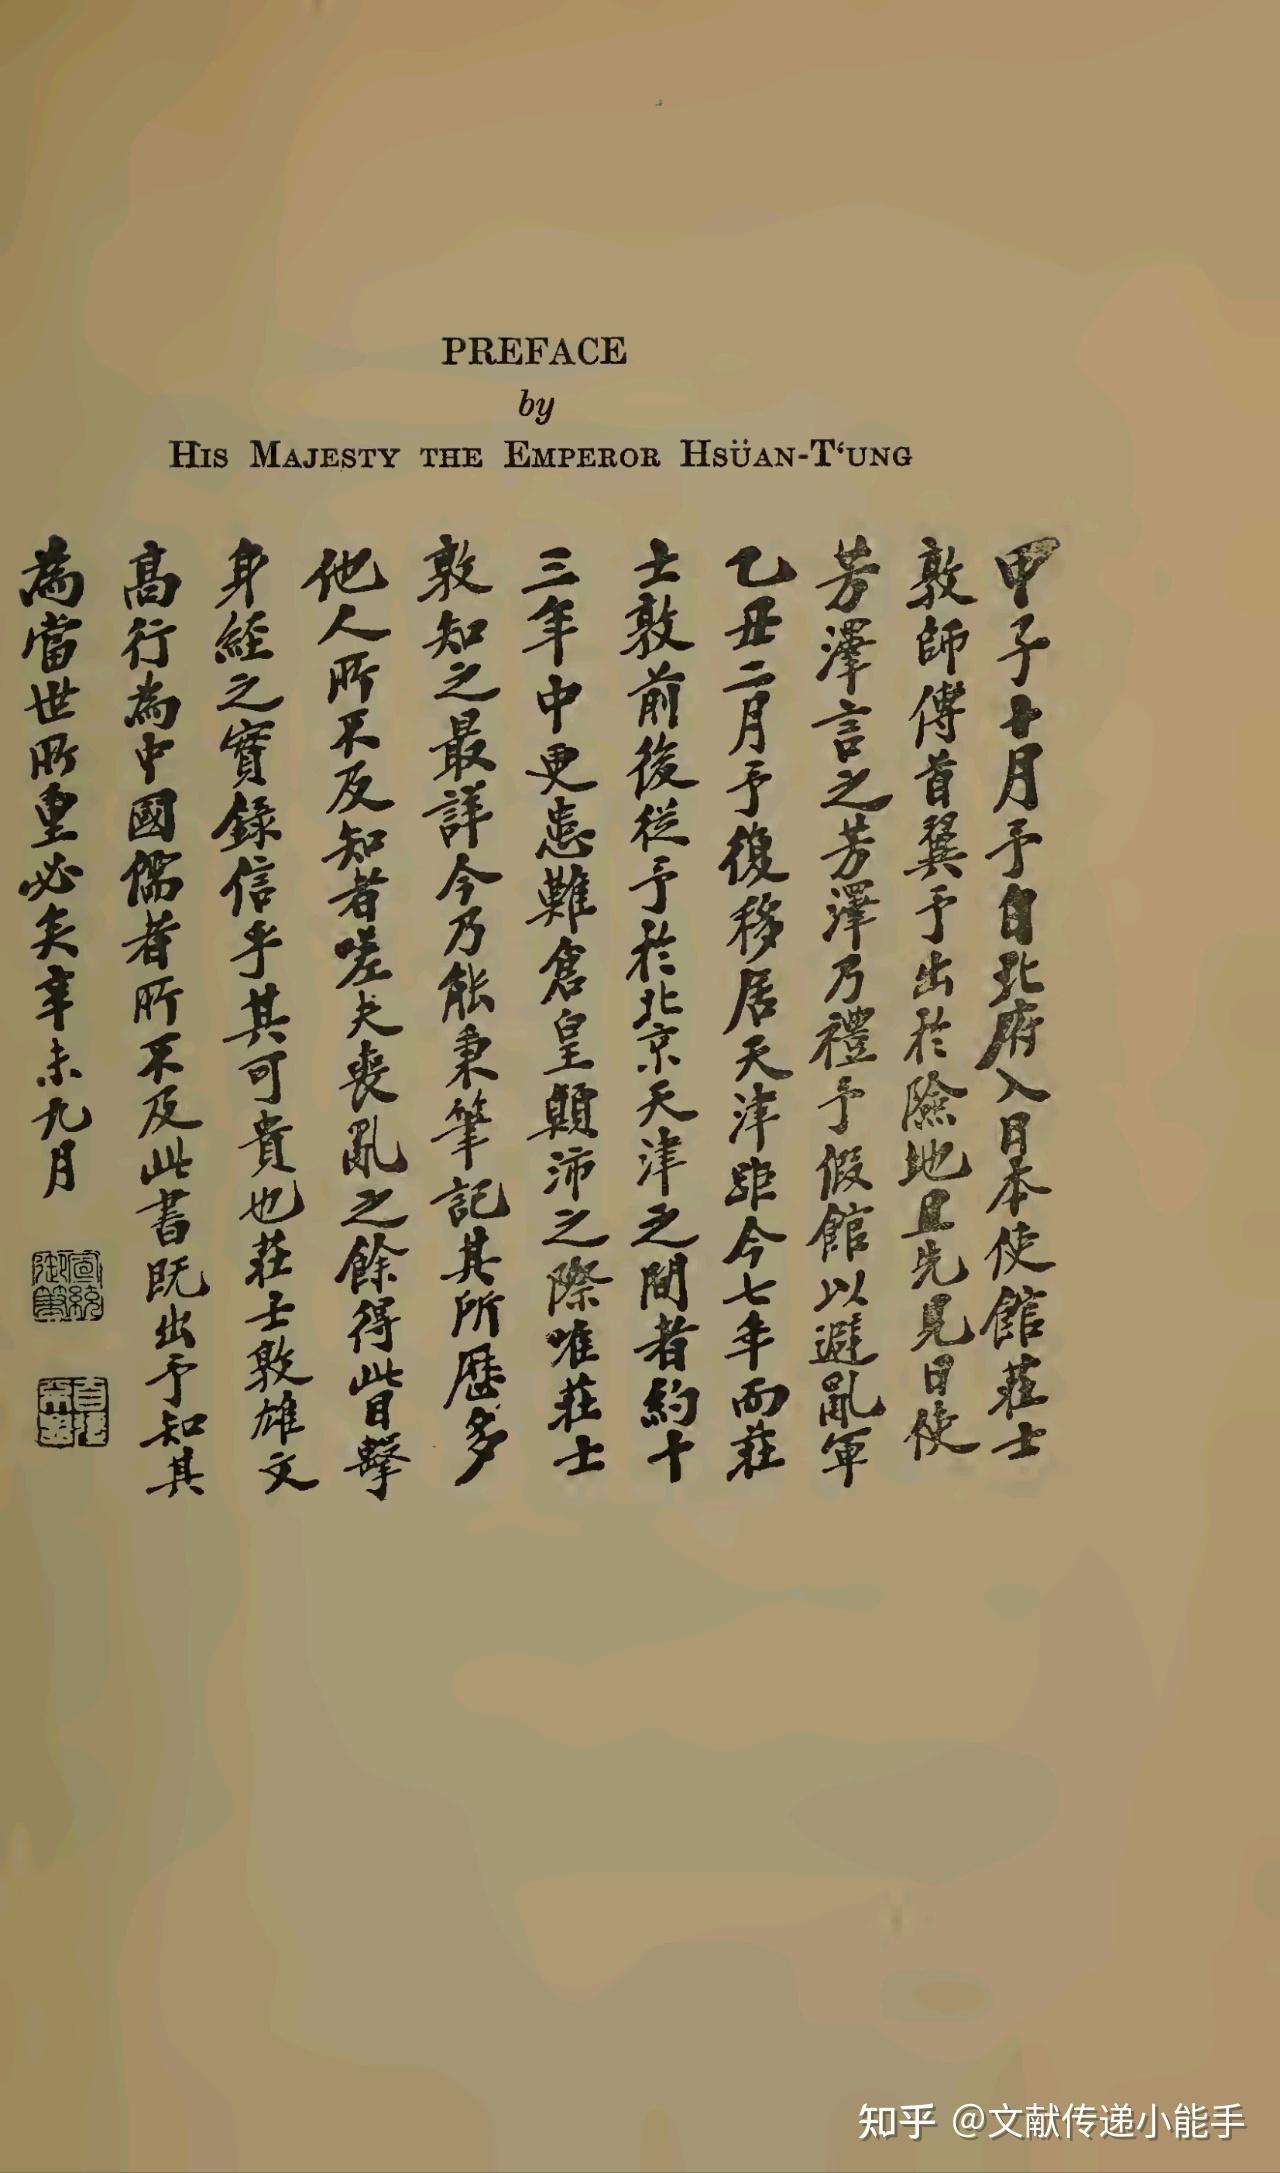 PREFACE
by
HIS MAJESTY THE EMPEROR HSÜAN-T‘UNG
甲子十月予自北府入日本使館莊士
敦師傅首翼予出於險地且先見日使
芳澤言之芳澤乃禮予假館以避亂軍
乙丑二月予復移居天津距今七年而莊
士敦前後從予於北京天津之間者約十
三年中更患難倉皇顛沛之際唯莊士
敦知之最詳今乃能秉筆記其所歷多
他人所不及知者嗟夫喪亂之餘得此目擊
身經之實錄信乎其可貴也莊士敦雄文
高行為中國儒者所不及此書既出予知其
為當世所重必矣辛未九月
宣統御筆
自強不息
知乎 @文献传递小能手